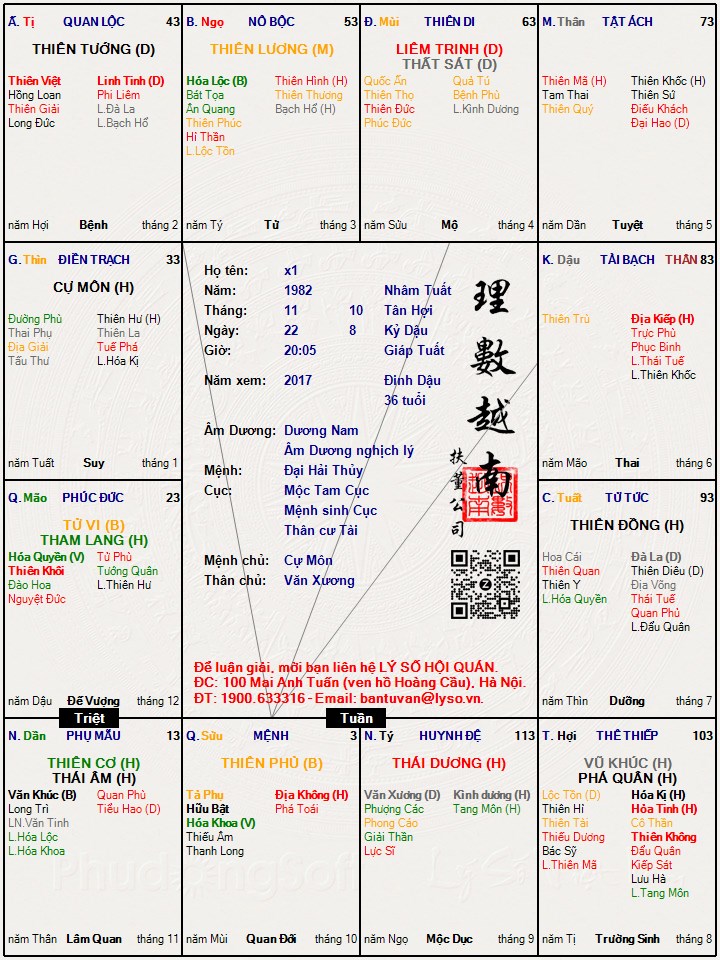 Ấ. Tị QUAN LỘC 43
THIÊN TƯỚNG (D)
Thiên Việt Linh Tinh (D)
Hồng Loan Phi Liêm
Thiên Giải L.Đà La
Long Đức L.Bạch Hổ
năm Hợi Bệnh tháng 2
B. Ngọ NÔ BỘC 53
THIÊN LƯƠNG (M)
Hóa Lộc (B) Thiên Hình (H)
Bát Tọa Thiên Thương
Ân Quang Bạch Hổ (H)
Thiên Phúc
Hỉ Thần
L.Lộc Tồn
năm Tý Tử tháng 3
Đ. Mùi THIÊN DI 63
LIÊM TRINH (D)
THẤT SÁT (D)
Quốc Ấn Quả Tú
Thiên Thọ Bệnh Phù
Thiên Đức L.Kình Dương
Phúc Đức
năm Sửu Mộ tháng 4
M. Thân TẬT ÁCH 73
Thiên Mã (H) Thiên Khốc (H)
Tam Thai Thiên Sứ
Thiên Quý Điếu Khách
Đại Hao (D)
năm Dần Tuyệt tháng 5
G. Thìn ĐIỀN TRẠCH 33
CỰ MÔN (H)
Đường Phù Thiên Hư (H)
Thai Phụ Thiên La
Địa Giải Tuế Phá
Tấu Thư L.Hóa Kị
năm Tuất Suy tháng 1
Họ tên: x1
Năm: 1982 Nhâm Tuất
Tháng: 11 10 Tân Hợi
Ngày: 22 8 Kỷ Dậu
Giờ: 20:05 Giáp Tuất
Năm xem: 2017 Đinh Dậu
36 tuổi
Âm Dương: Dương Nam
Âm Dương nghịch lý
Mệnh: Đại Hải Thủy
Cục: Mộc Tam Cục
Mệnh sinh Cục
Thân cư Tài
Mệnh chủ: Cự Môn
Thân chủ: Văn Xương
理數越南
扶董公司
Để luận giải, mời bạn liên hệ LÝ SỐ HỘI QUÁN.
ĐC: 100 Mai Anh Tuấn (ven hồ Hoàng Cầu), Hà Nội.
ĐT: 1900.633316 - Email: bantuvan@lyso.vn.
K. Dậu TÀI BẠCH THÂN 83
Thiên Trù Địa Kiếp (H)
Trực Phù
Phục Binh
L.Thái Tuế
L.Thiên Khốc
năm Mão Thai tháng 6
Q. Mão PHÚC ĐỨC 23
TỬ VI (B)
THAM LANG (H)
Hóa Quyền (V) Tử Phù
Thiên Khôi Tướng Quân
Đào Hoa L.Thiên Hư
Nguyệt Đức
năm Dậu Đế Vượng tháng 12
C. Tuất TỬ TỨC 93
THIÊN ĐỒNG (H)
Hoa Cái Đà La (D)
Thiên Quan Thiên Diêu (D)
Thiên Y Địa Võng
L.Hóa Quyền Thái Tuế
Quan Phủ
L.Đẩu Quân
năm Thìn Dưỡng tháng 7
Triệt
Tuần
N. Dần PHỤ MẪU 13
THIÊN CƠ (H)
THÁI ÂM (H)
Văn Khúc (B) Quan Phù
Long Trì Tiểu Hao (D)
LN.Văn Tinh
L.Hóa Lộc
L.Hóa Khoa
năm Thân Lâm Quan tháng 11
Q. Sửu MỆNH 3
THIÊN PHỦ (B)
Tả Phụ Địa Không (H)
Hữu Bật Phá Toái
Hóa Khoa (V)
Thiếu Âm
Thanh Long
năm Mùi Quan Đới tháng 10
N. Tý HUYNH ĐỆ 113
THÁI DƯƠNG (H)
Văn Xương (D) Kình dương (H)
Phượng Các Tang Môn (H)
Phong Cáo
Giải Thần
Lực Sĩ
năm Ngọ Mộc Dục tháng 9
T. Hợi THÊ THIẾP 103
VŨ KHÚC (H)
PHÁ QUÂN (H)
Lộc Tồn (D) Hóa Kị (H)
Thiên Hỉ Hỏa Tinh (H)
Thiên Tài Cô Thần
Thiếu Dương Thiên Không
Bác Sỹ Đẩu Quân
L.Thiên Mã Kiếp Sát
Lưu Hà
L.Tang Môn
năm Tị Trường Sinh tháng 8